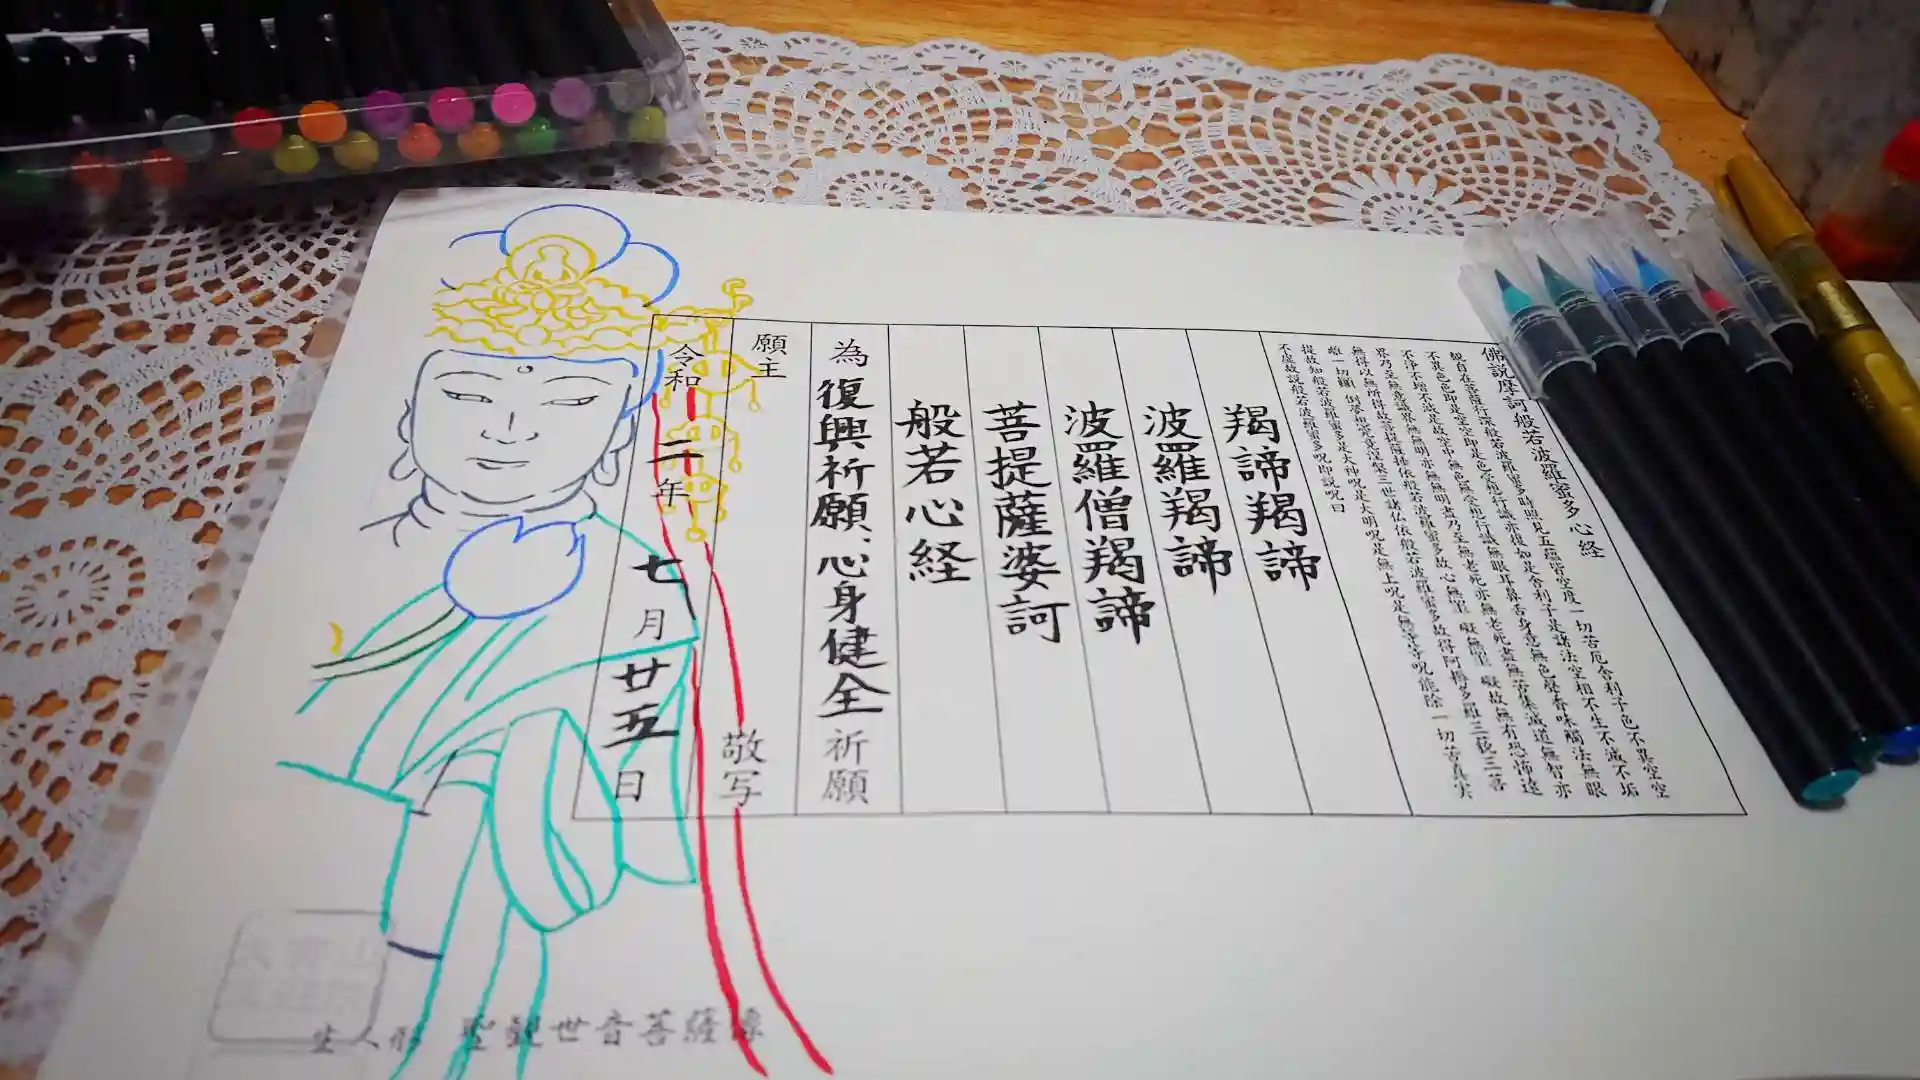 佛説摩訶般若波羅蜜多心経
観自在菩薩行深般若波羅蜜多時照見五蘊皆空度一切苦厄舎利子色不異空空
不異色色即是空空即是色受想行識亦復如是舎利子是諸法空相不生不滅不垢
不浄不増不減是故空中無色無受想行識無眼耳鼻舌身意無色聲香味觸法無眼
界乃至無意識界無無明亦無無明盡乃至無老死亦無老死盡無苦集滅道無智亦
無得以無所得故菩提薩埵依般若波羅蜜多故心無罣礙無罣礙故無有恐怖遠
離一切顛倒夢想究竟涅槃三世諸仏依般若波羅蜜多故得阿耨多羅三藐三菩
提故知般若波羅蜜多是大神呪是大明呪是無上呪是無等等呪能除一切苦真実
不虚故説般若波羅蜜多呪即説呪曰
羯諦羯諦
波羅羯諦
波羅僧羯諦
菩提薩婆訶
般若心経
為復興祈願、心身健全祈願
願主 敬写
令和二年七月廿五日
聖観世音菩薩像